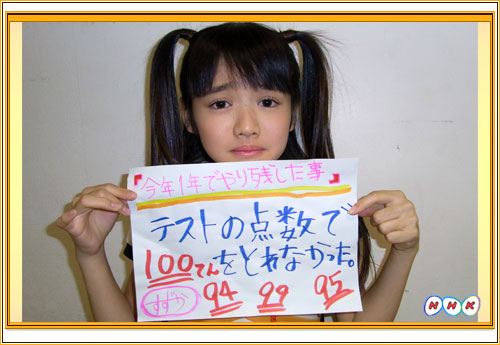 『今年1年でやり残した事』
テストの点数で
100てんをとれなかった。
すずか 94 99 95
NHK